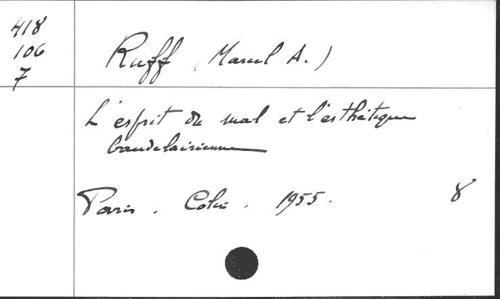 418
106
7
Ruff (Marcel A.)
L'esprit du mal et l'esthétique
baudelairienne
Paris. Colin. 1955. 8